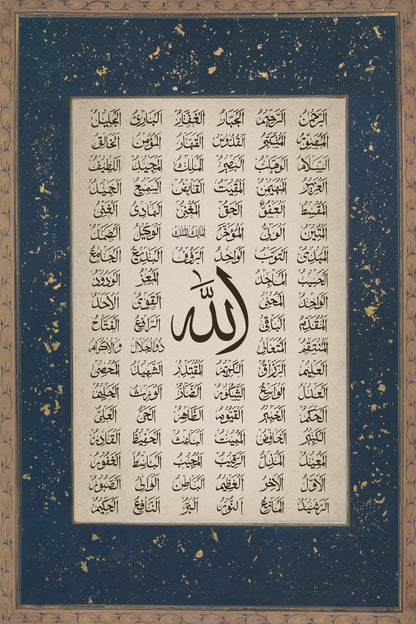 الرحمن الرحيم الجبار الغفار البارئ الجليل
المصور المتكبر القدوس القهار المؤمن الخالق
السلام الوهاب البصير الملك المجيد اللطيف
العزيز المهيمن المقيت القابض السميع الحميد
المقسط العفو الحق المغني الهادي الغني
المتين الولي المؤخر مالك الملك الوكيل الصمد
المبدئ التواب الواجد الرؤوف البديع الجامع
الحسيب الماجد المعز الودود
الواحد المحيي القوي الأحد
الله
المقدم الباقي الرافع الفتاح
المنتقم المتعالي ذو الجلال والإكرام
العليم الرزاق الكريم المقتدر الشهيد المحصي
العدل الواسع الشكور الضار الوارث الحليم
الحكم الخبير القيوم الظاهر الحي العلي
الكبير الخافض المميت الباعث الحفيظ القادر
المعيد المذل الرقيب المجيب الباسط الغفور
الأول الآخر العظيم الباطن الوالي الصبور
الرشيد المانع النور البر النافع الحكيم